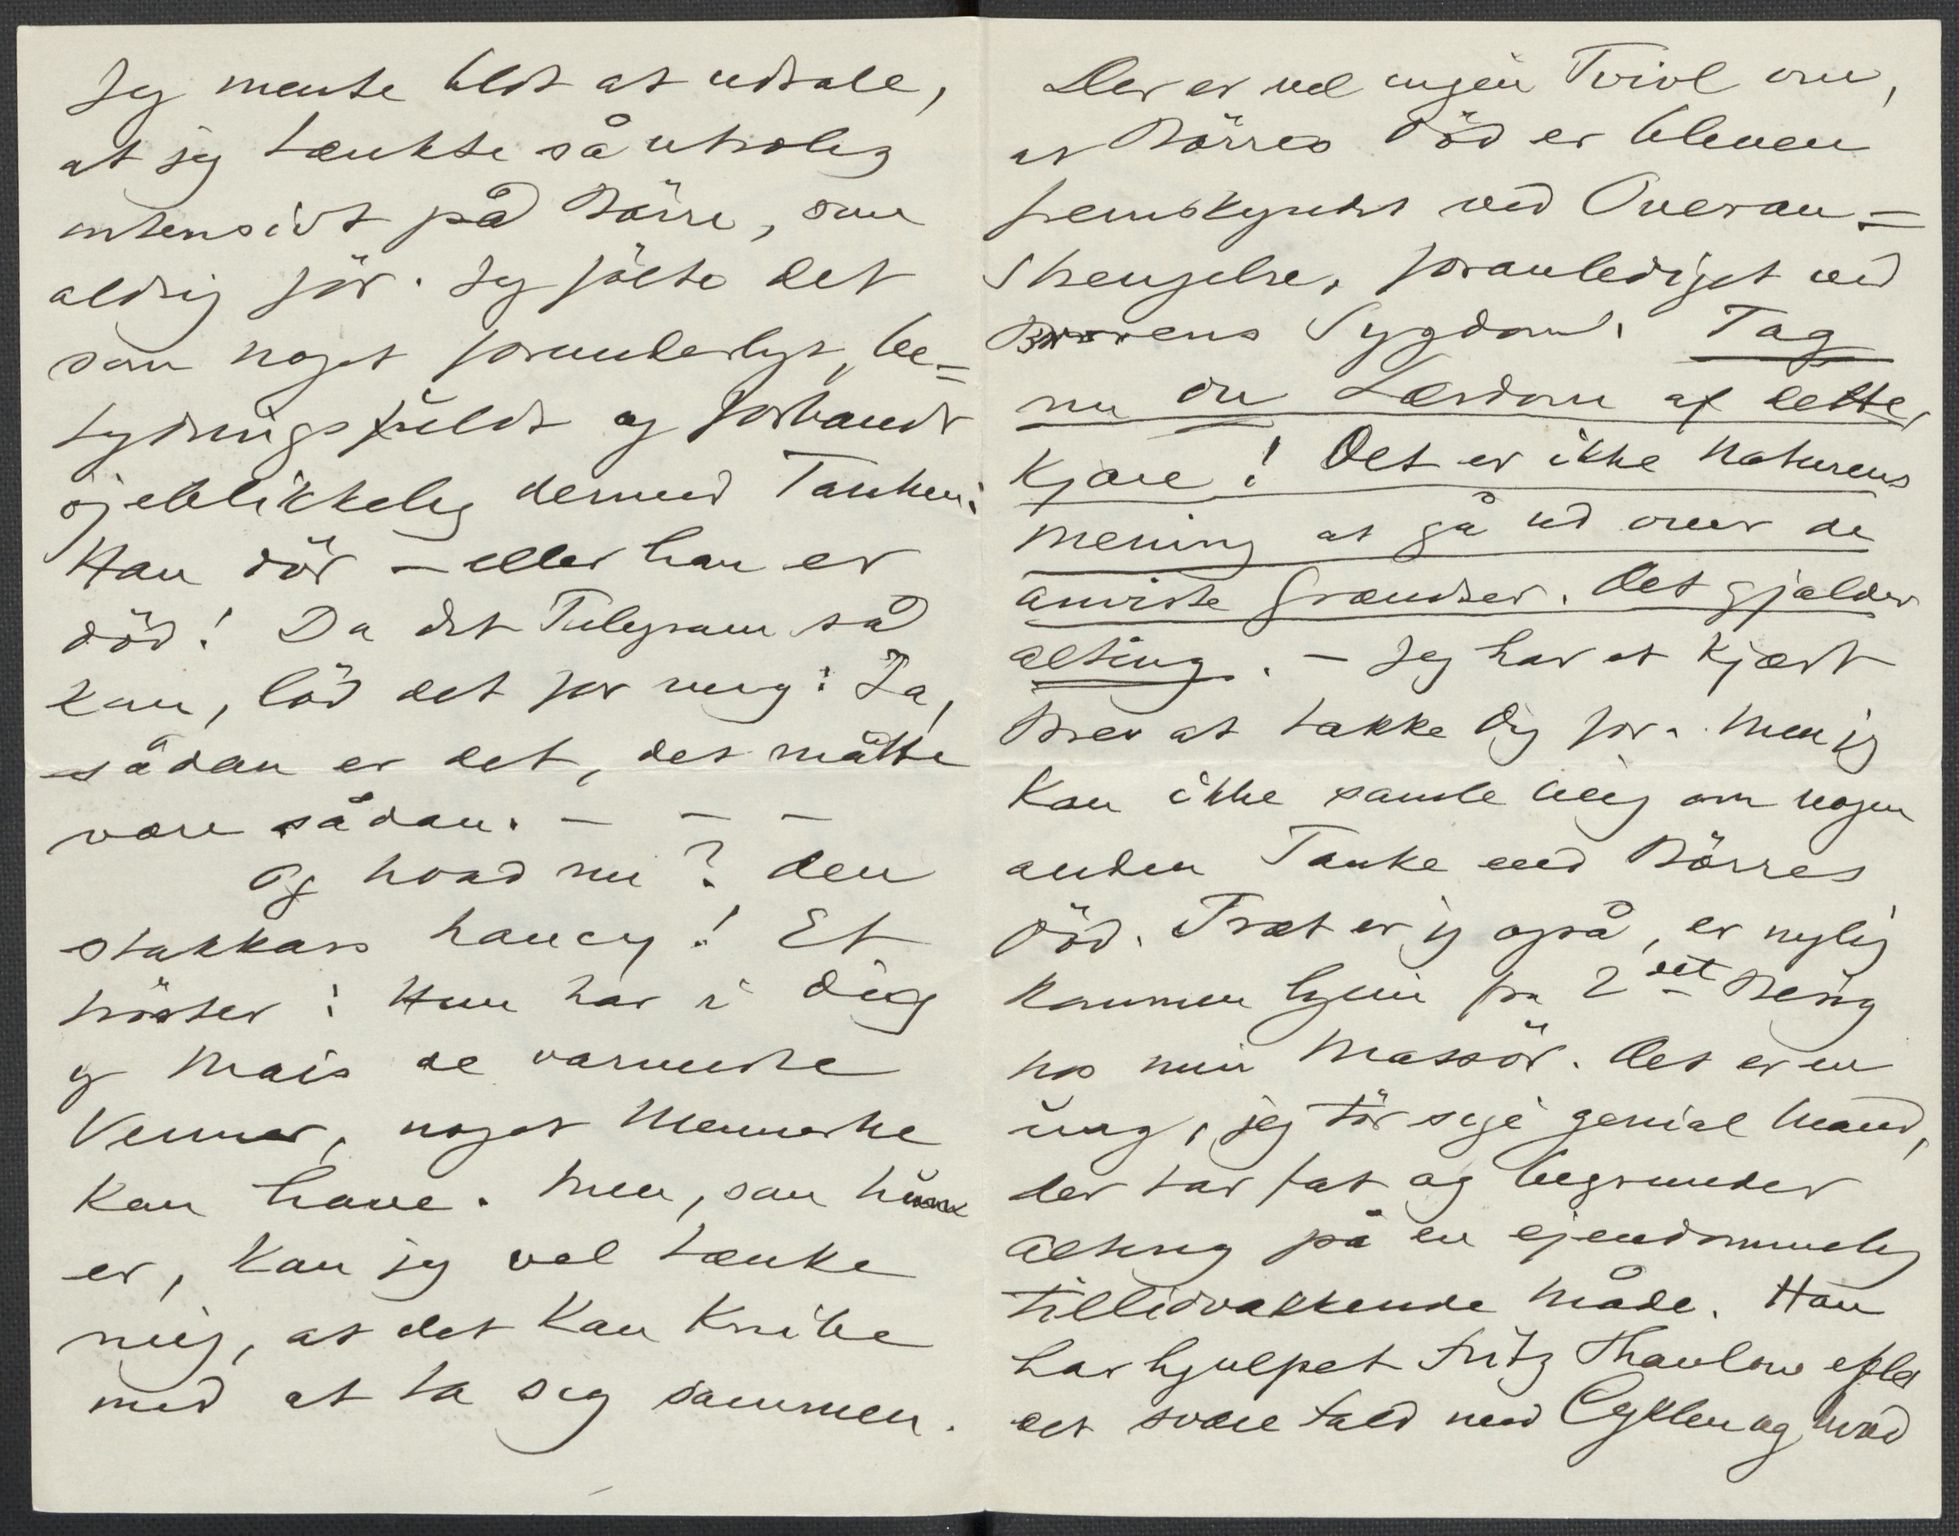 Jeg mente blot at udtale,
at jeg tænkte så utrolig
intensivt på Börre, som
aldrig för. Jeg fölte det
som noget forunderligt, be=
tydningsfuldt og forbandt
öjeblikkelig dermed Tanken:
Han dör – eller han er
död! Da det Telegram så
kom, löd det for mig: Ja,
sådan er det, det måtte
være sådan. – – –
Og hvad nu? Den
stakkars Nancy! Et
tröster: Hun har i Dig
og Mais de varmeste
Venner, noget Menneske
kan have. Men, som hun
er, kan jeg vel tænke
mig, at det kan knibe
med at ta sig sammen.
Der er vel ingen Tvivl om,
at Börres Död er bleven
fremskyndet ved Overan=
strengelse, foranlediget ved
Brorens Sygdom. Tag
nu en Lærdom af dette,
Kjære! Det er ikke Naturens
Mening at gå ud over de
anviste Grændser. Det gjælder
alting. – Jeg har et kjært
Brev at takke Dig for. Men jeg
kan ikke samle mig om nogen
anden Tanke end Börres
Död. Træt er jeg også, er nylig
kommen hjem fra 2det Besög
hos min Massör. Det er en
ung, jeg tör sige genial Mand,
der tar fat og begrunder
alting på en ejendommelig
tillidvækkende Måde. Han
har hjulpet Fritz Thaulow efter
det svære Fald med Cyklen og hvad